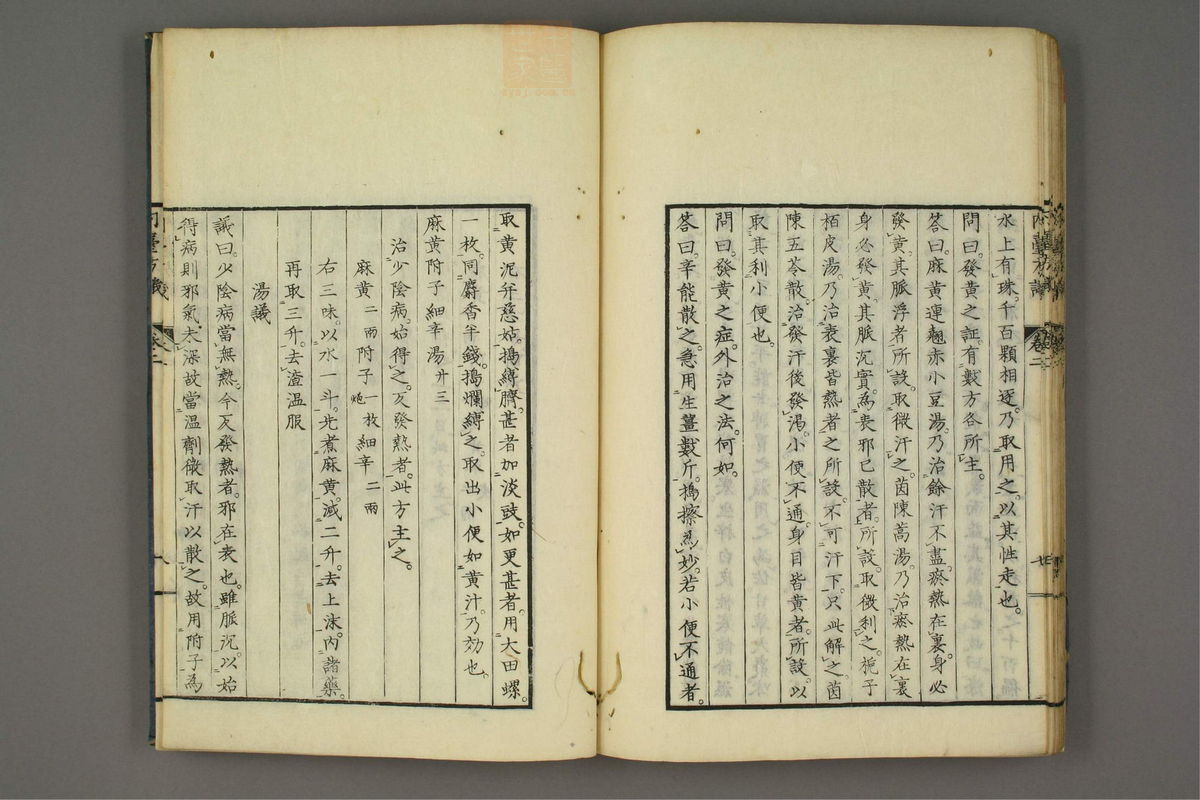 水上有珠千百顆相逐乃取用之以其性走也
問曰發黃之証有數方各所主
答曰麻黃連翹赤小豆湯乃治餘汗不盡瘀熱在裏身必
發黃其脈浮者所設取微汗之茵陳蒿湯乃治瘀熱在裏
身必發黃其脈沉實為表邪已散者所設取微利之梔子
栢皮湯乃治表裏皆熱者之所設不可汗下只此解之茵
陳五苓散治發汗後發渴小便不通身目皆黃者所設以
取其利小便也
問曰發黃之症外治之法何如
答曰辛能散之急用生薑數斤搗擦為妙若小便不通者
取黃泥幷慈姑搗縛臍甚者加淡豉如更甚者用大田螺
一枚同麝香半錢搗爛縛之取出小便如黃汁乃効也
麻黃附子細辛湯廾三
治少陰病始得之反發熱者此方主之
麻黃二兩附子一枚炮細辛二兩
右三味以水一斗先煮麻黃減二升去上沫內諸藥
再取三升去渣溫服
湯議
議曰少陰病當無熱今反發熱者邪在表也雖脈沉以始
得病則邪氣未深故當溫劑微取汗以散之故用附子為